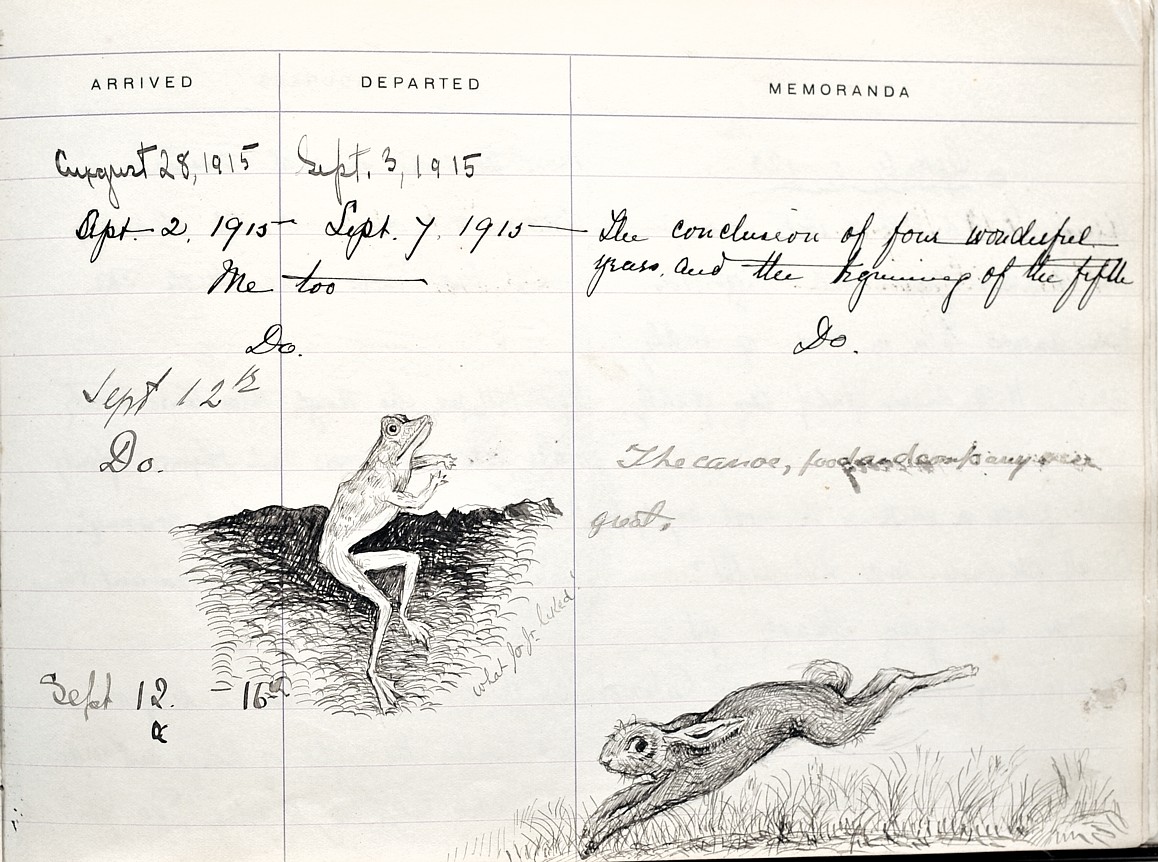 ARRIVED DEPARTED MEMORANDA
August 28, 1915 Sept. 3, 1915
Sept. 2, 1915 Sept. 7, 1915 The conclusion of four wonderful
years, and the beginning of the fifth
Me too
Do. Do.
Sept 12th
Do. The canoe, food and company were
great.
what Jo Jo liked!
Sept 12. - 16th